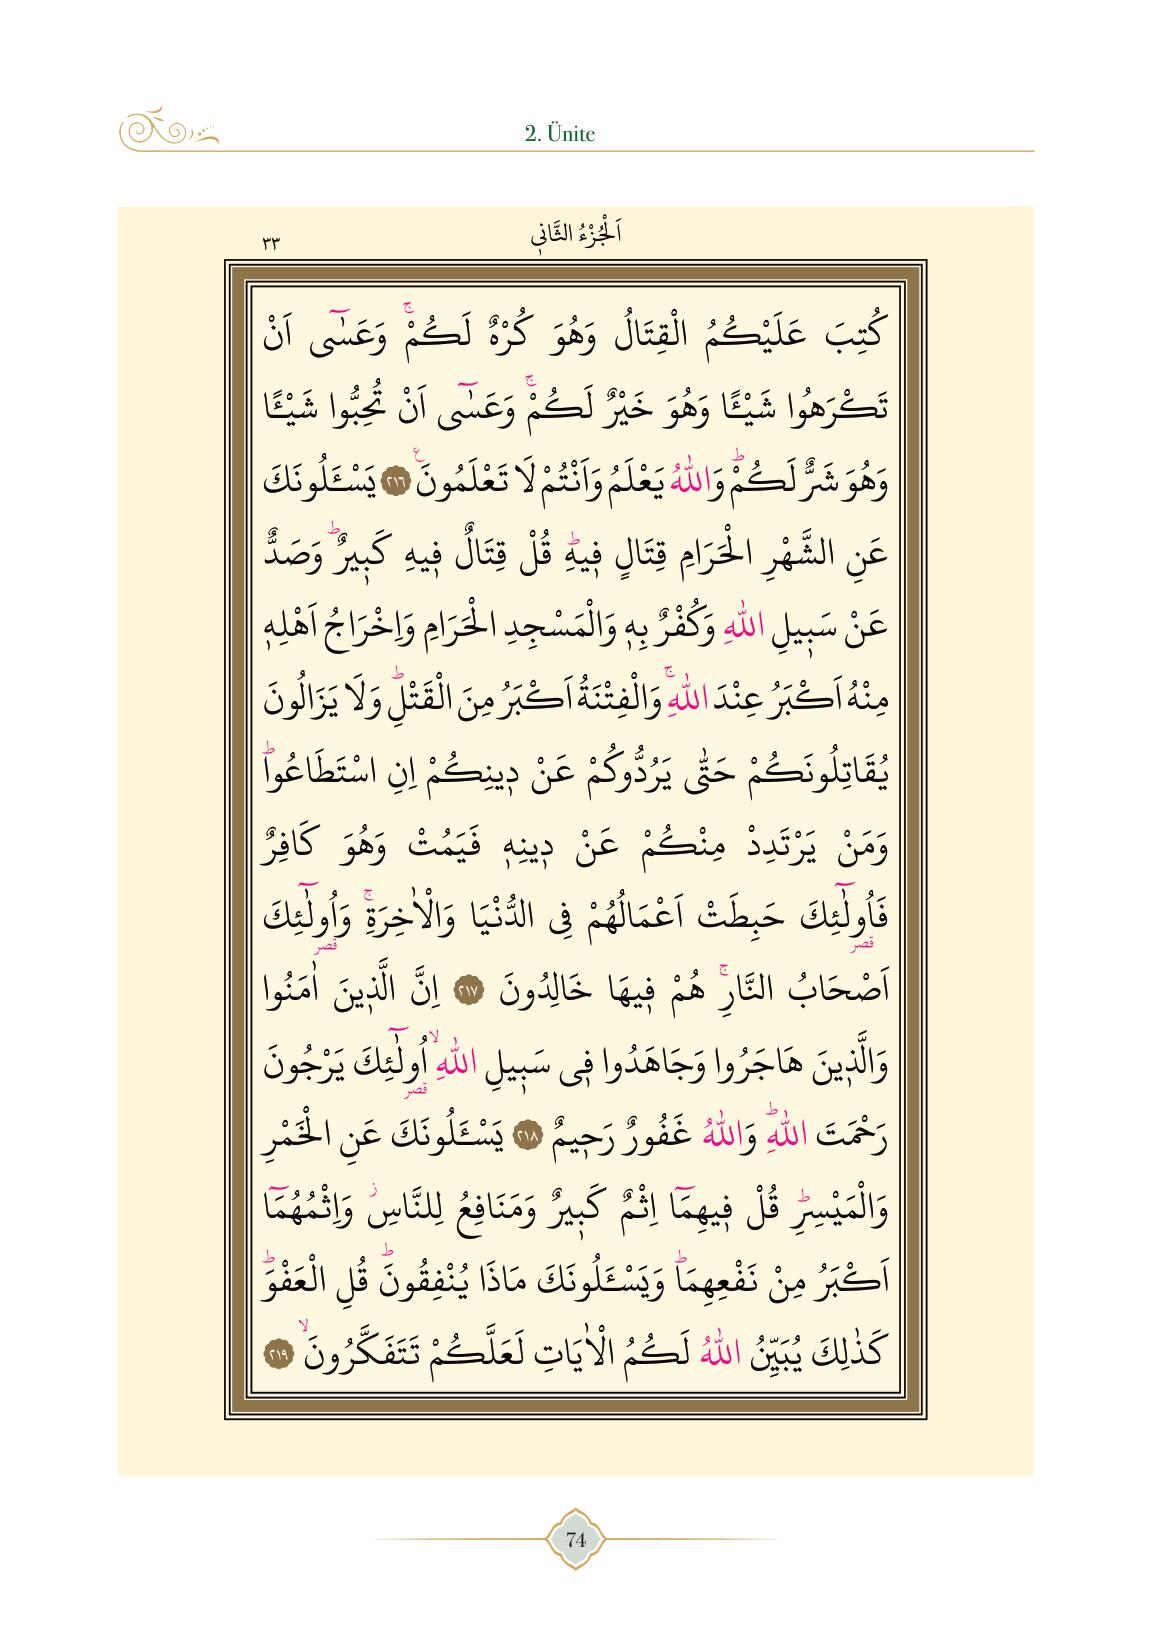 2. Ünite
اَلْجُزْءُ الثَّانٖي
٣٣
كُتِبَ عَلَيْكُمُ الْقِتَالُ وَهُوَ كُرْهٌ لَكُمْۚ وَعَسٰٓى اَنْ
تَكْرَهُوا شَيْـًٔا وَهُوَ خَيْرٌ لَكُمْۚ وَعَسٰٓى اَنْ تُحِبُّوا شَيْـًٔا
وَهُوَ شَرٌّ لَكُمْؕ وَاللّٰهُ يَعْلَمُ وَاَنْتُمْ لَا تَعْلَمُونَࣖ ﴿٢١٦﴾ يَسْـَٔلُونَكَ
عَنِ الشَّهْرِ الْحَرَامِ قِتَالٍ فٖيهِؕ قُلْ قِتَالٌ فٖيهِ كَبٖيرٌؕ وَصَدٌّ
عَنْ سَبٖيلِ اللّٰهِ وَكُفْرٌ بِهٖ وَالْمَسْجِدِ الْحَرَامِ وَاِخْرَاجُ اَهْلِهٖ
مِنْهُ اَكْبَرُ عِنْدَ اللّٰهِۚ وَالْفِتْنَةُ اَكْبَرُ مِنَ الْقَتْلِؕ وَلَا يَزَالُونَ
يُقَاتِلُونَكُمْ حَتّٰى يَرُدُّوكُمْ عَنْ دٖينِكُمْ اِنِ اسْتَطَاعُواؕ
وَمَنْ يَرْتَدِدْ مِنْكُمْ عَنْ دٖينِهٖ فَيَمُتْ وَهُوَ كَافِرٌ
فَاُولٰٓئِكَ حَبِطَتْ اَعْمَالُهُمْ فِى الدُّنْيَا وَالْاٰخِرَةِۚ وَاُولٰٓئِكَ
قصر قصر
اَصْحَابُ النَّارِۚ هُمْ فٖيهَا خَالِدُونَ ﴿٢١٧﴾ اِنَّ الَّذٖينَ اٰمَنُوا
وَالَّذٖينَ هَاجَرُوا وَجَاهَدُوا فٖى سَبٖيلِ اللّٰهِۙ اُولٰٓئِكَ يَرْجُونَ
قصر
رَحْمَتَ اللّٰهِؕ وَاللّٰهُ غَفُورٌ رَحٖيمٌ ﴿٢١٨﴾ يَسْـَٔلُونَكَ عَنِ الْخَمْرِ
وَالْمَيْسِرِؕ قُلْ فٖيهِمَٓا اِثْمٌ كَبٖيرٌ وَمَنَافِعُ لِلنَّاسِؗ وَاِثْمُهُمَٓا
اَكْبَرُ مِنْ نَفْعِهِمَاؕ وَيَسْـَٔلُونَكَ مَاذَا يُنْفِقُونَؕ قُلِ الْعَفْوَؕ
كَذٰلِكَ يُبَيِّنُ اللّٰهُ لَكُمُ الْاٰيَاتِ لَعَلَّكُمْ تَتَفَكَّرُونَۙ ﴿٢١٩﴾
74